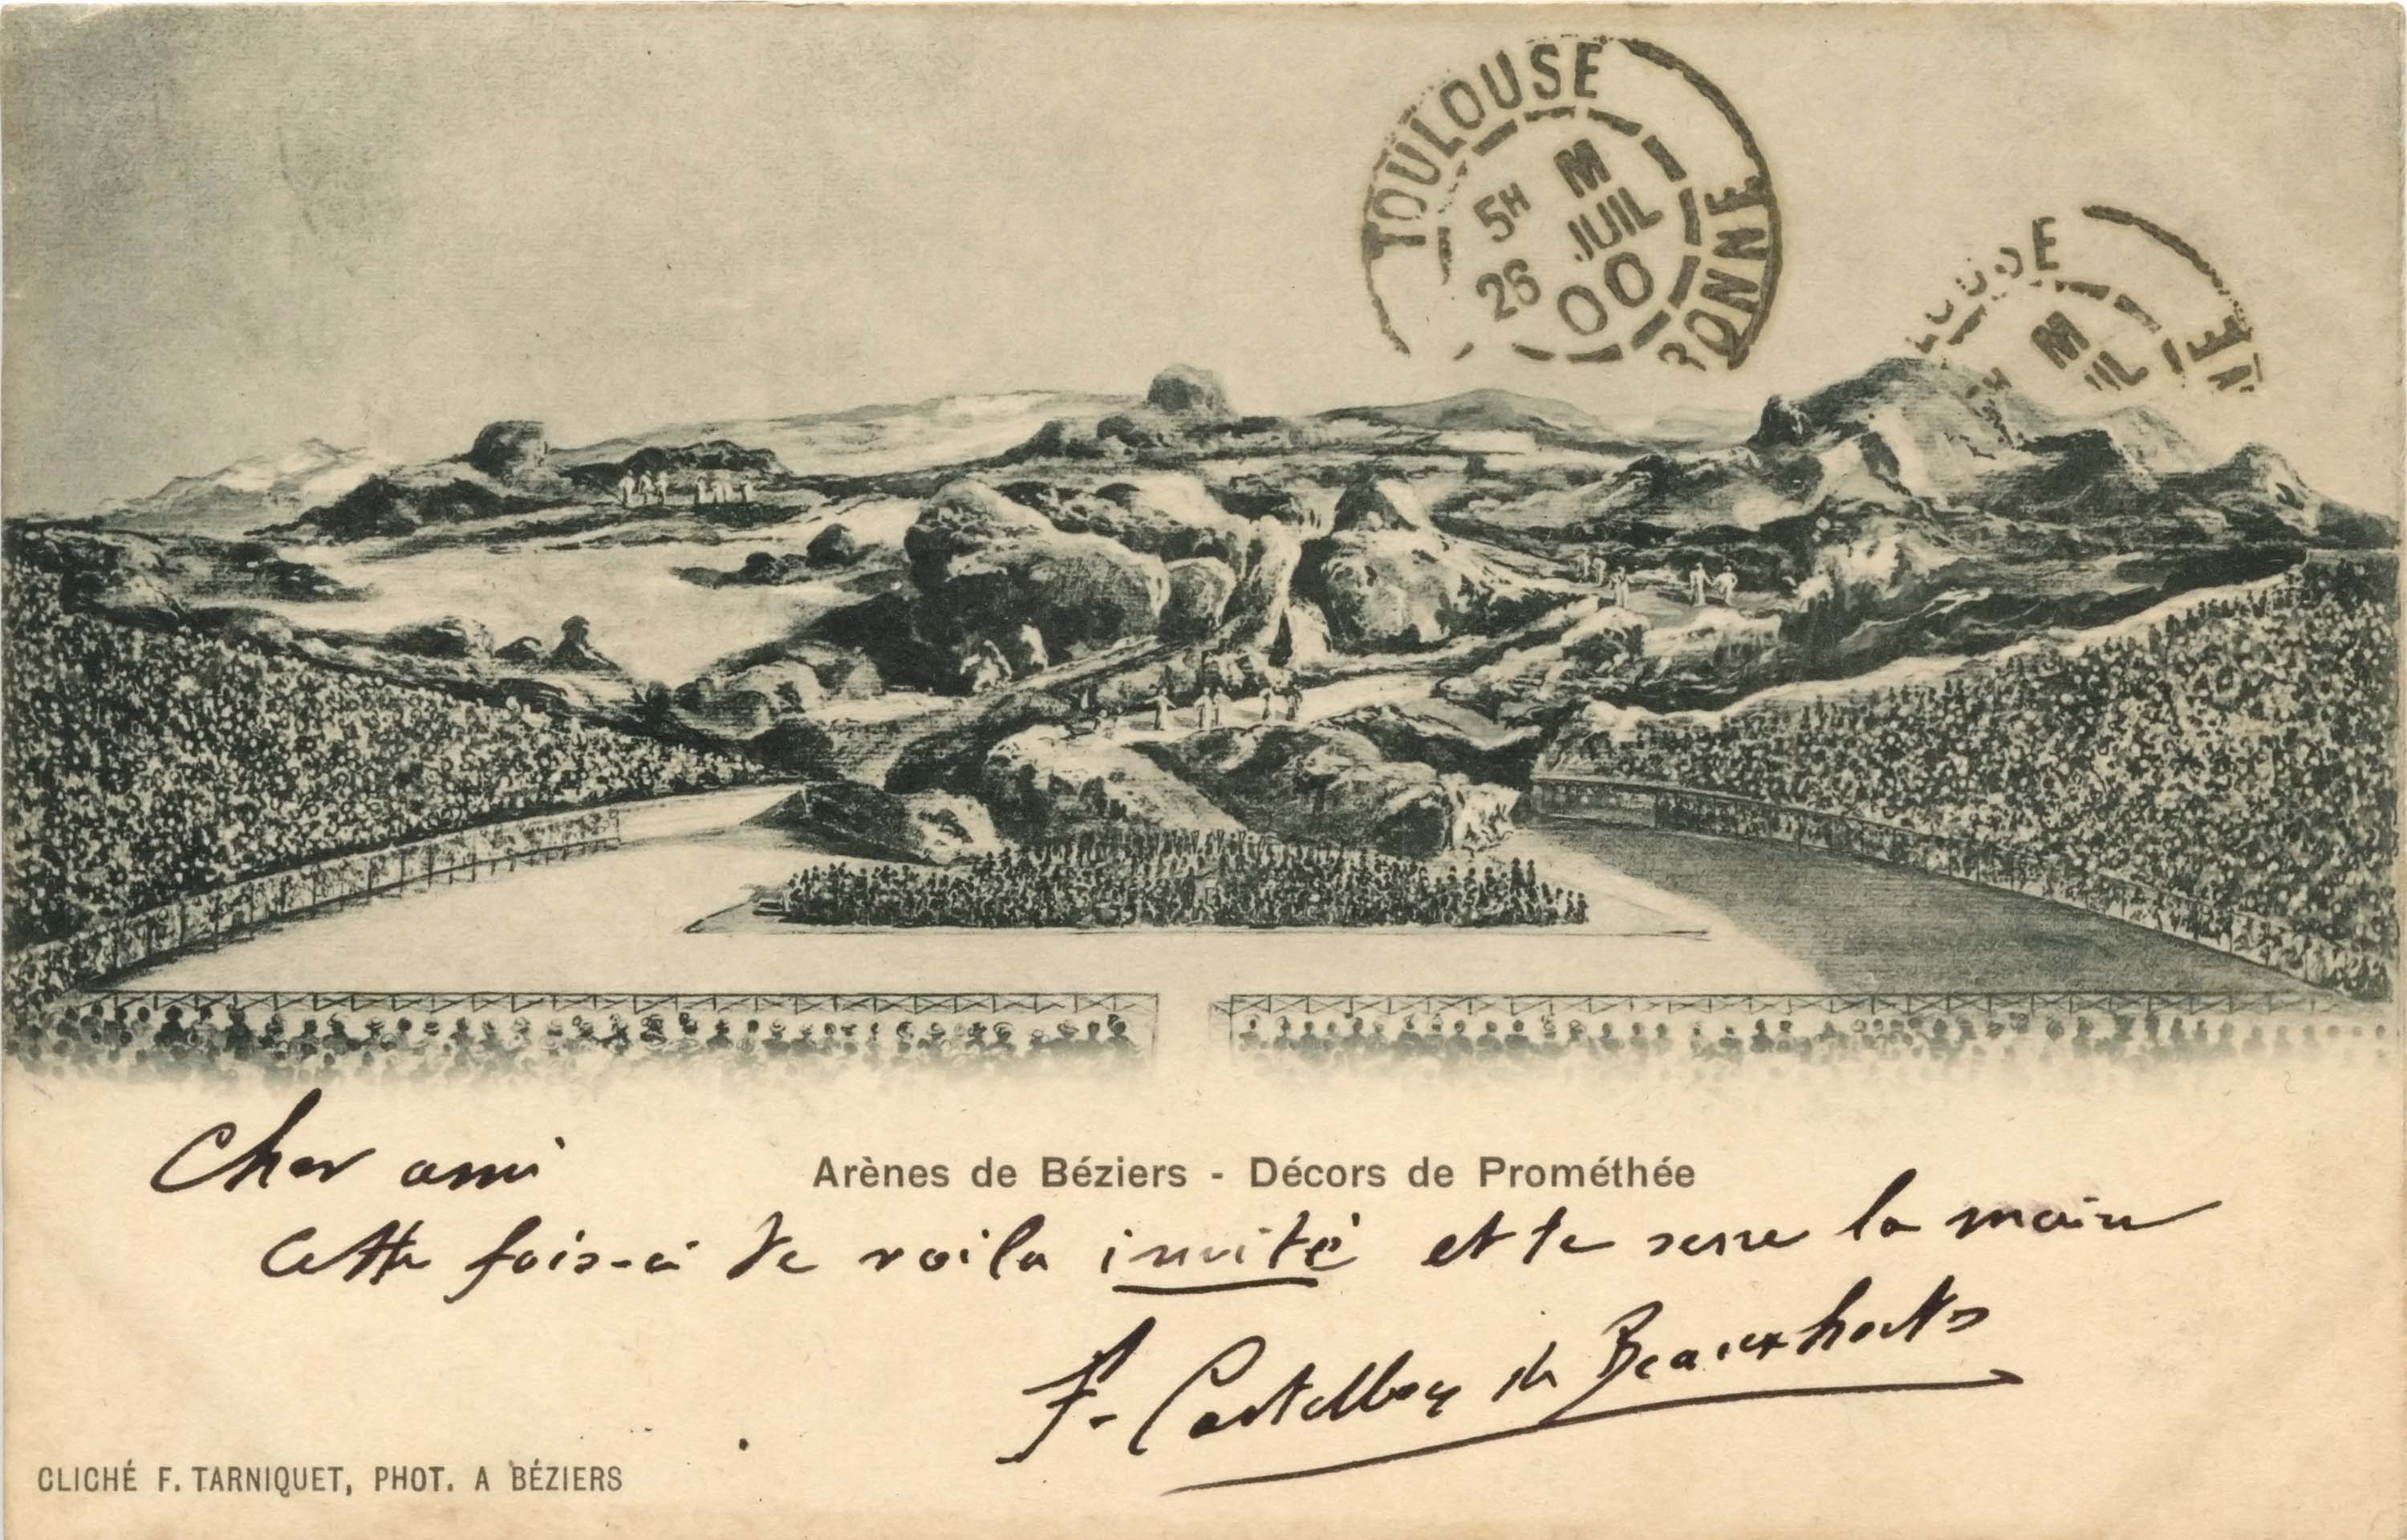 TOULOUSE
5H M
26 JUIL
00
ONNE
M
Arènes de Béziers - Décors de Prométhée
Cher ami
Cette fois-ci te voila invité et te serre la main
F. Castelbon de Beauxhostes
CLICHÉ F. TARNIQUET, PHOT. A BÉZIERS